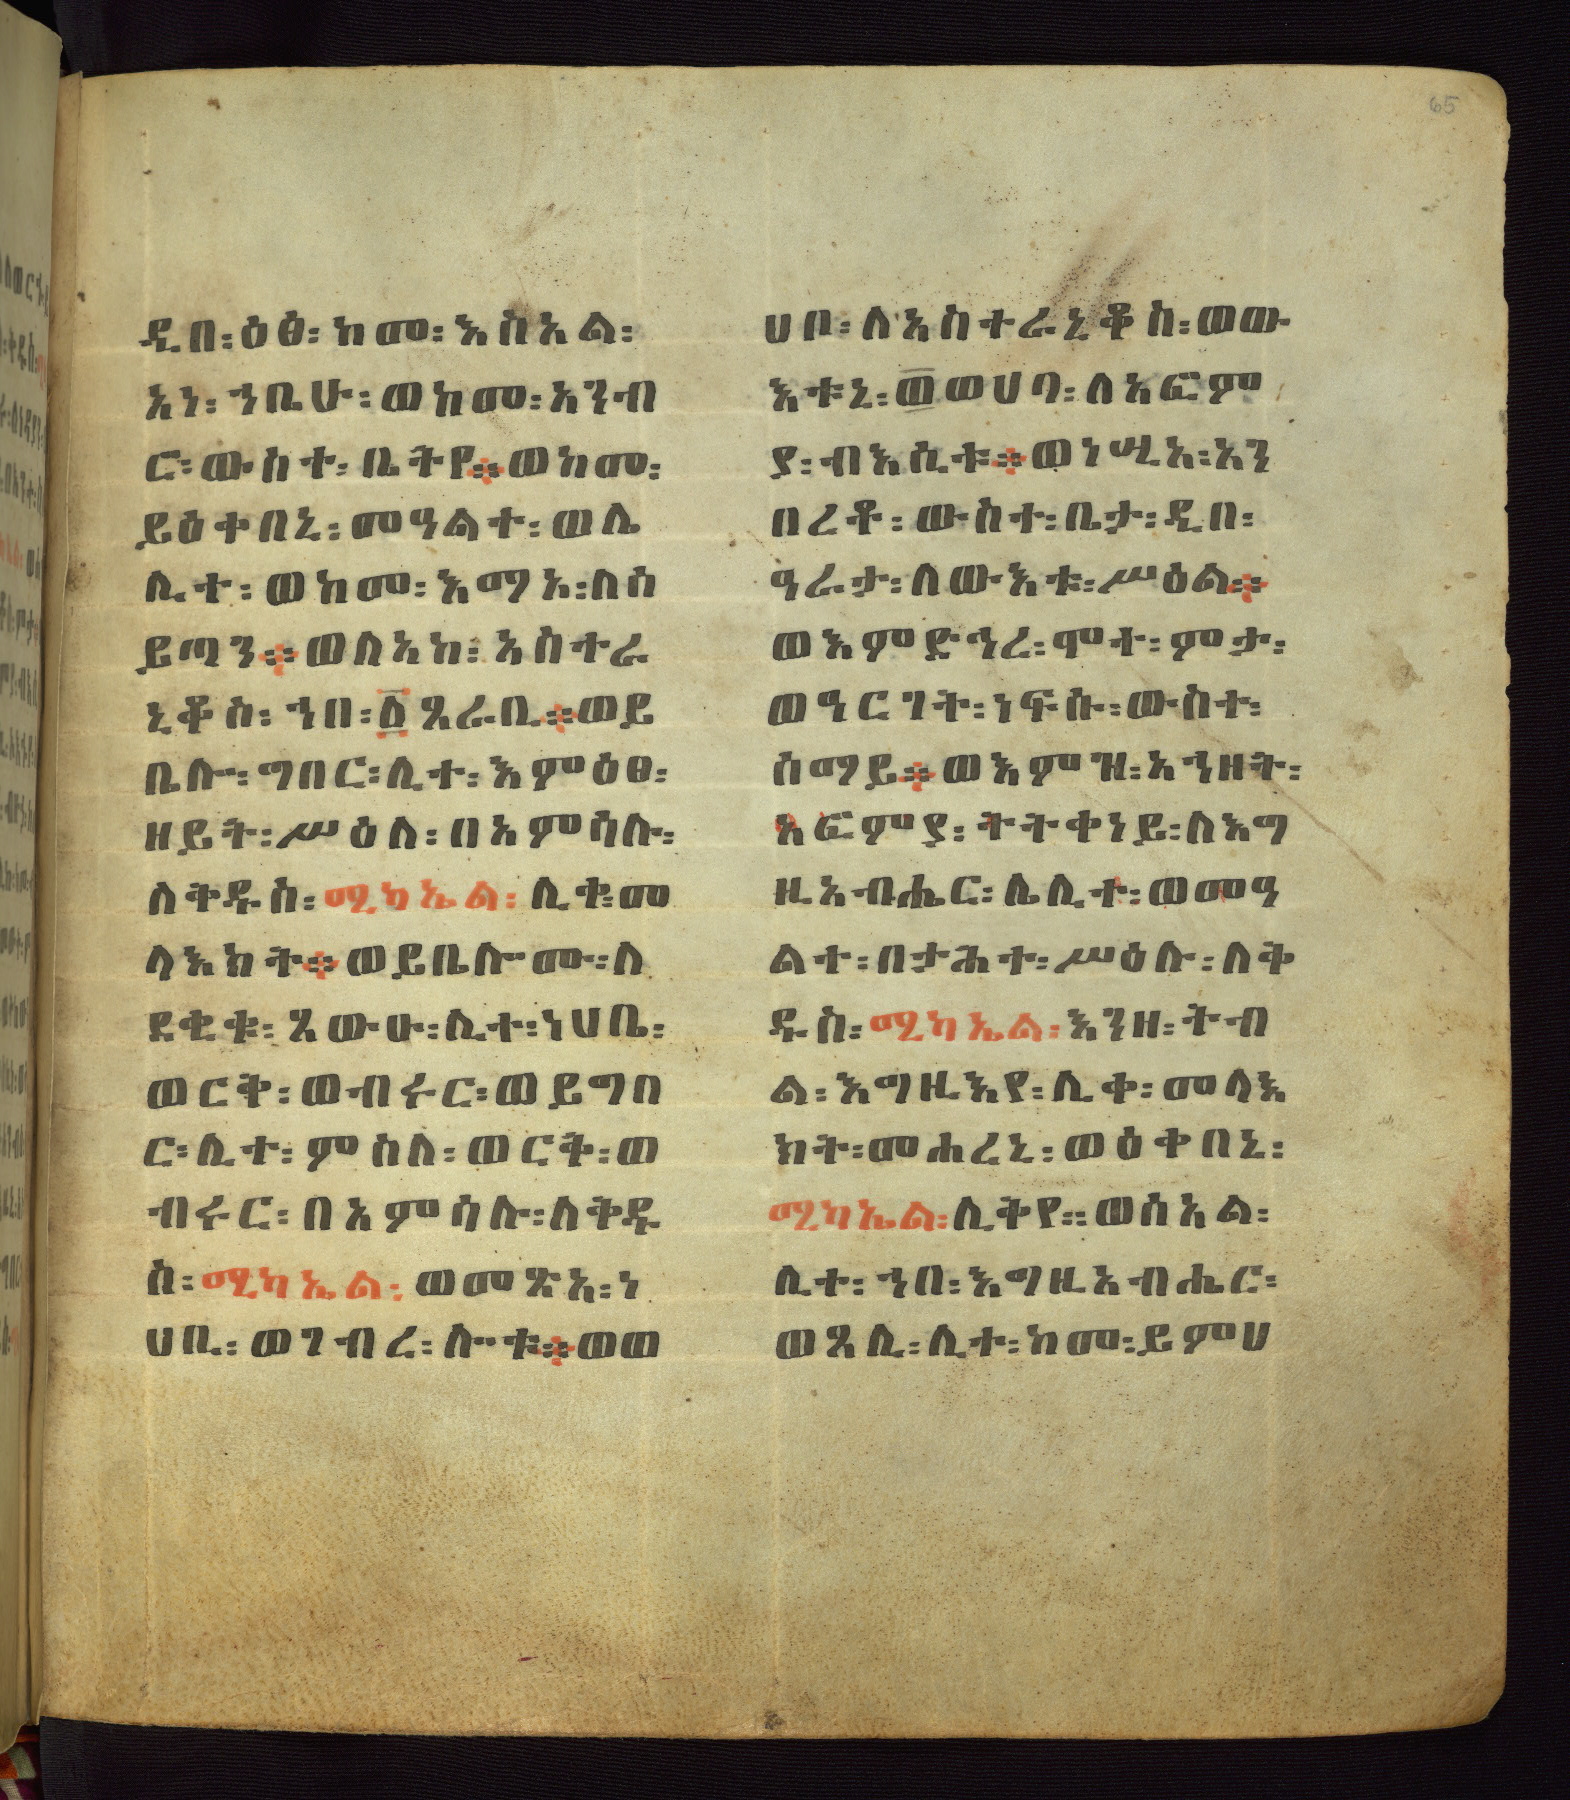 65
ዲበ፡ዕፅ፡ከመ፡እስአል፡
አነ፡ኀቤሁ፡ወከመ፡አንብ
ር፡ውስተ፡ቤትየ፨ወከመ፡
ይዕቀበኒ፡መዓልተ፡ወሌ
ሊተ፡ወከመ፡እማእ፡ለሰ
ይጣን፨ወለአከ፡አስተራ
ኒቆስ፡ኀበ፡፩ጸራቢ፨ወይ
ቤሎ፡ግበር፡ሊተ፡እምዕፀ፡
ዘይት፡ሥዕለ፡በአምሳሉ፡
ለቅዱስ፡ሚካኤል፡ሊቀ፡መ
ላእክት፨ወይቤሎሙ፡ለ
ደቂቁ፡ጸውዑ፡ሊተ፡ነሀቤ፡
ወርቅ፡ወብሩር፡ወይግበ
ር፡ሊተ፡ምስለ፡ወርቅ፡ወ
ብሩር፡በአምሳሉ፡ለቅዱ
ስ፡ሚካኤል፡ወመጽአ፡ነ
ሀቢ፡ወገብረ፡ሎቱ፨ወወ
ሀቦ፡ለአስተራኒቆስ፡ወው
እቱኒ፡ወወሀባ፡ለአፎም
ያ፡ብእሲቱ፨ወነሥአ፡አን
በረቶ፡ውስተ፡ቤታ፡ዲበ፡
ዓራታ፡ለውእቱ፡ሥዕል፨
ወእምድኅረ፡ሞተ፡ምታ፡
ወዓርገት፡ነፍሱ፡ውስተ፡
ሰማይ፨ወእምዝ፡አኀዘት፡
አፎምያ፡ትትቀነይ፡ለእግ
ዚአብሔር፡ሌሊተ፡ወመዓ
ልተ፡በታሕተ፡ሥዕሉ፡ለቅ
ዱስ፡ሚካኤል፡እንዘ፡ትብ
ል፡እግዚእየ፡ሊቀ፡መላእ
ክት፡መሐረኒ፡ወዕቀበኒ፡
ሚካኤል፡ሊቅየ።ወሰአል፡
ሊተ፡ኀበ፡እግዚአብሔር፡
ወጸሊ፡ሊተ፡ከመ፡ይምሀ